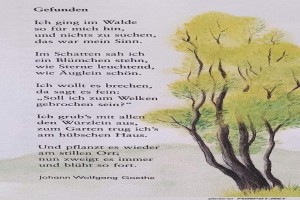 Gefunden
Ich ging im Walde
so für mich hin,
und nichts zu suchen,
das war mein Sinn.
Im Schatten sah ich
ein Blümchen stehn,
wie Sterne leuchtend,
wie Äuglein schön.
Ich wollt es brechen,
da sagt es fein:
„Soll ich zum Welken
gebrochen sein?"
Ich grub's mit allen
den Würzlein aus,
zum Garten trug ich's
am hübschen Haus.
Und pflanzt es wieder
am stillen Ort;
nun zweigt es immer
und blüht so fort.
Johann Wolfgang Goethe